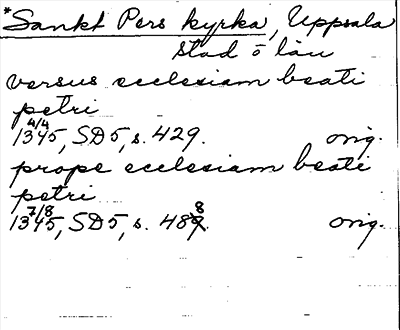 *Sankt Pers kyrka, Uppsala
stad o län
versus ecclesiam beati
petri
4/4
1345, SD5, s. 429. orig.
prope ecclesiam beati
petri
7/8 8
1345, SD5, s. 489. orig.